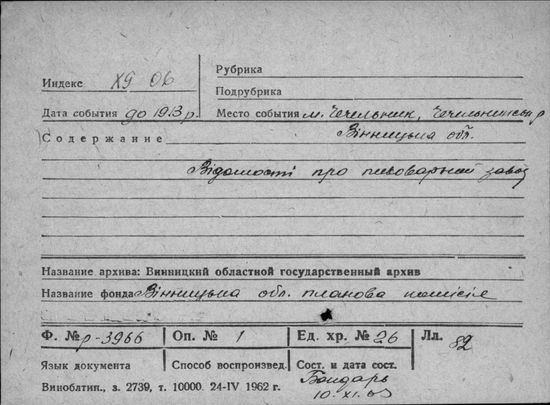 Индекс Х9 06
Рубрика
Подрубрика
Дата события до 1913 р
Место события м. Чечельник, Чечельницьк. р
Вінницька обл.
Содержание
Відомості про пивоварний завод
Название архива: Винницкий областной государственный архив
Название фонда Вінницька обл. планова комісія
Ф. № р-3966 Оп. № 1 Ед. хр. № 26 Лл. 82
Язык документа Способ воспроизвед. Сост. и дата сост.
Бондарь
10.XI.63
Виноблтип., з. 2739, т. 10000. 24-IV 1962 г.